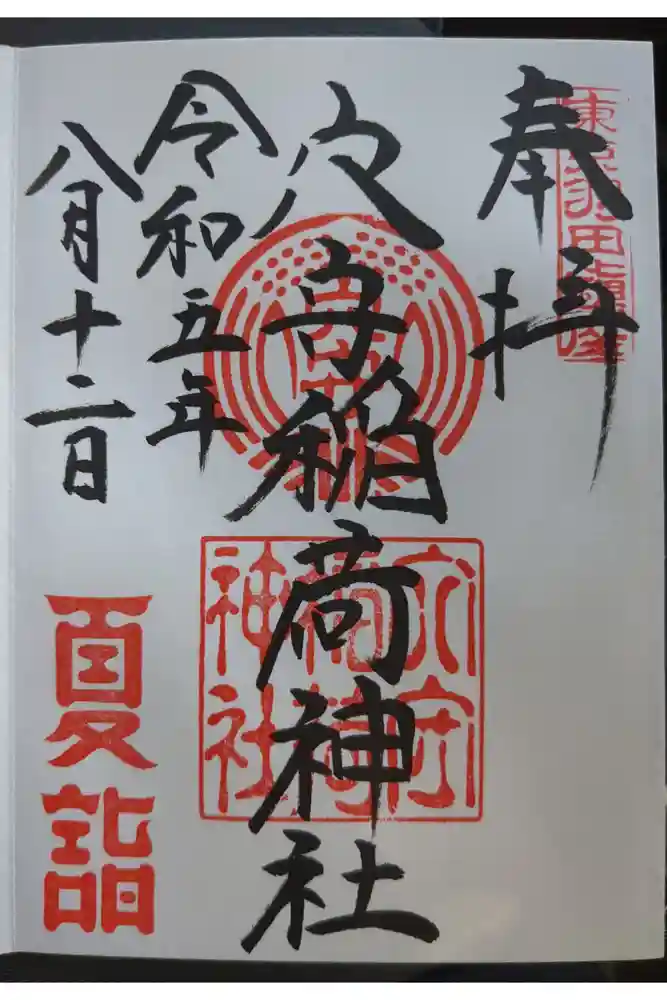 東京羽田鎮座
奉拝
穴守稲荷神社
穴守稲荷神社
令和五年
八月十二日
夏詣